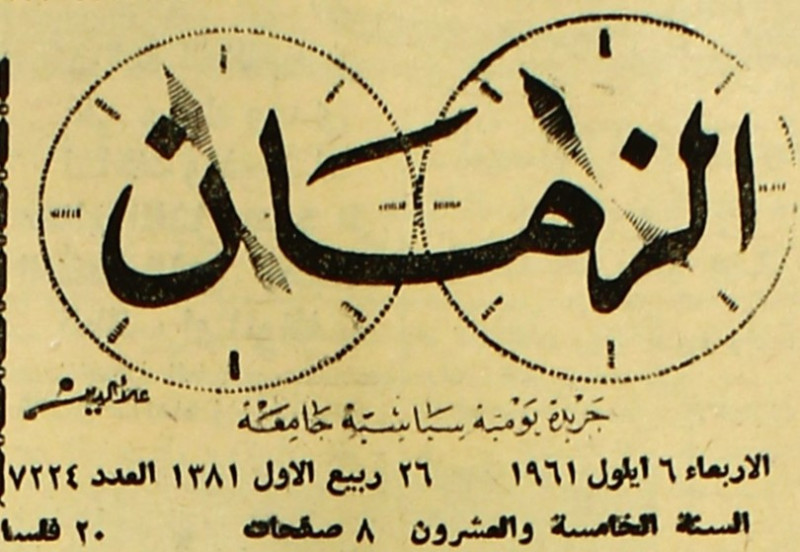 الزمان
علاء الدين
جريدة يومية سياسية جامعة
الاربعاء ٦ ايلول ١٩٦١ ٢٦ ربيع الاول ١٣٨١ العدد ٧٢٢٤
السنة الخامسة والعشرون ٨ صفحات ٢٠ فلسا